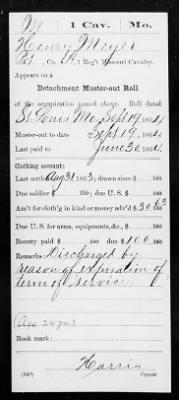 M 1 Cav. Mo.
Henry Meyer
Pvt, Co. A, 1 Reg't Missouri Cavalry.
Appears on a
Detachment Muster-out Roll
of the organization named above. Roll dated
St. Louis Mo, Sept 19, 1864.
Muster-out to date Sept. 19, 1864.
Last paid to June 30, 1864.
Clothing account:
Last settled Aug 31, 1863; drawn since $ 100
Due soldier $ 100; due U. S. $ 100
Am't for cloth'g in kind or money adv'd $ 30 63
Due U. S. for arms, equipments, &c., $ 100
Bounty paid $ 100; due $ 100 100
Remarks: Discharged by
reason of expiration of
term of service
(Age 24 yrs)
Book mark:
Harris
Copyist.